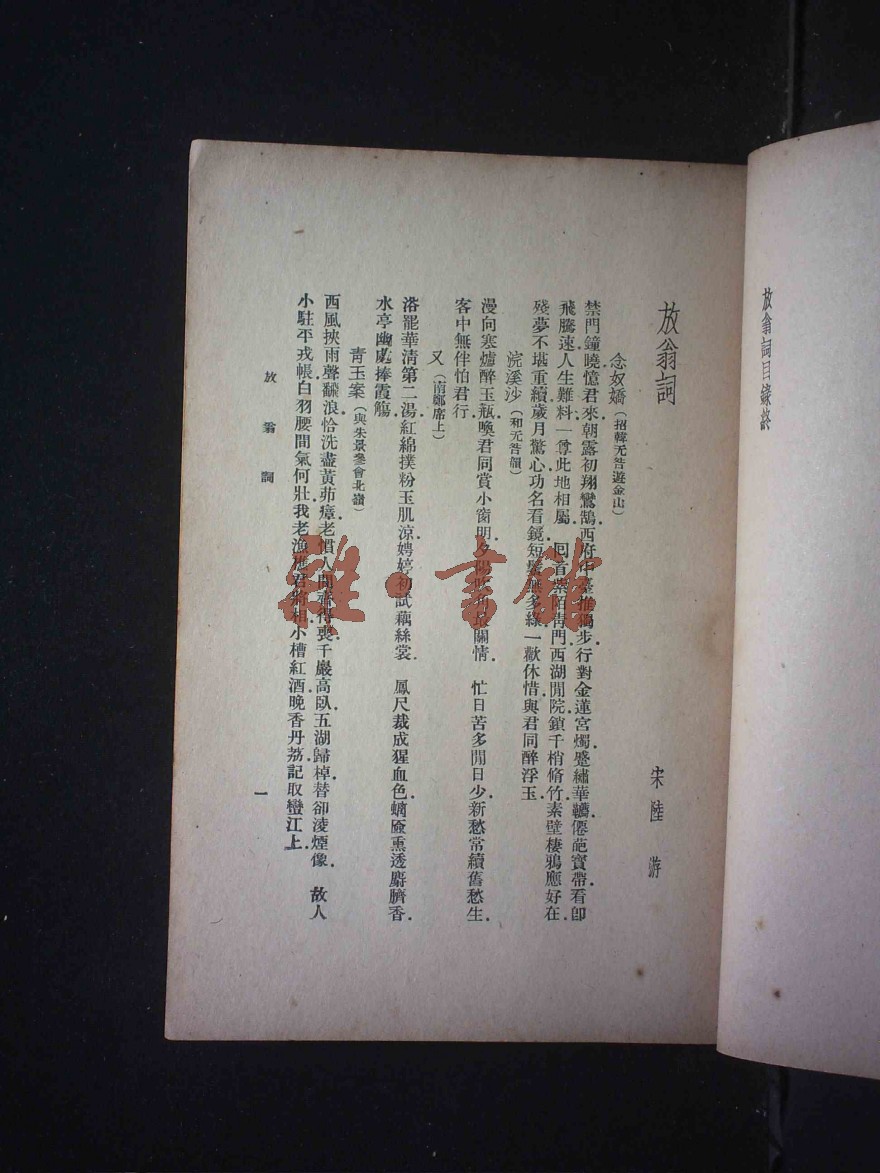 放翁詞目錄終
放翁詞
宋陸游
念奴嬌(招韓无咎遊金山)
禁門鐘曉憶君來朝露初翔鸞鵠．西府中臺推獨步．行對金蓮宮燭．蹙繡華韉．僊葩寶帶．看卽
飛騰速．人生難料．一尊此地相屬．　回首紫陌青門．西湖閒院．鎖千梢脩竹．素壁棲鴉應好在．
殘夢不堪重續．歲月驚心．功名看鏡．短鬢無多綠．一歡休惜．與君同醉浮玉．
浣溪沙(和无咎韻)
漫向寒爐醉玉瓶．喚君同賞小窗明．夕陽吹角最關情．　忙日苦多閒日少．新愁常續舊愁生．
客中無伴怕君行．
又(南鄭席上)
浴罷華清第二湯．紅綿撲粉玉肌涼．娉婷初試藕絲裳．　鳳尺裁成猩血色．螭奩熏透麝臍香．
水亭幽處捧霞觴．
青玉案(與朱景參會北嶺)
西風挾雨聲翻浪．恰洗盡黃茆瘴．老慣人間齊得喪．千巖高臥．五湖歸棹．替卻淩煙像．　故人
小駐平戎帳．白羽腰間氣何壯．我老漁樵君將相．小槽紅酒．晚香丹荔．記取蠻江上．
放翁詞
一